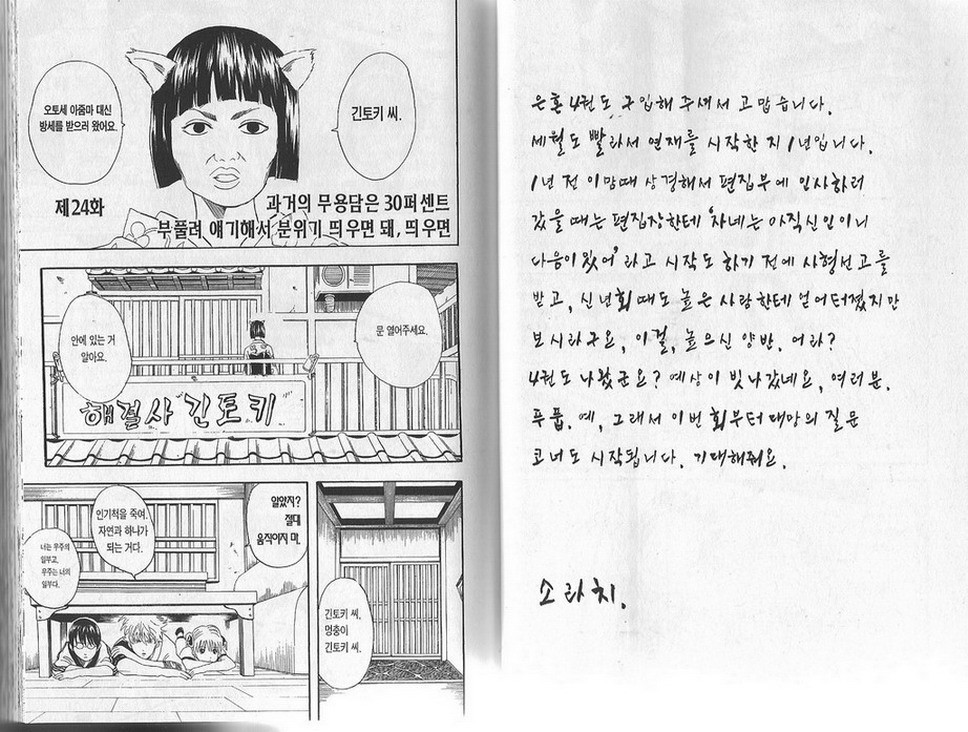 긴토키 씨.
오토세 아줌마 대신
방세를 받으러 왔어요.
제24화
과거의 무용담은 30퍼센트
부풀려 얘기해서 분위기 띄우면 돼, 띄우면
문 열어주세요.
안에 있는 거
알아요.
해결사 긴토키
알았지?
절대
움직이지 마.
인기척을 죽여.
자연과 하나가
되는 거다.
너는 우주의
일부고,
우주는 너의
일부다.
긴토키 씨.
멍충이
긴토키 씨.
은혼 4권도 구입해 주셔서 고맙습니다.
세월도 빨라서 연재를 시작한 지 1년입니다.
1년 전 이맘때 상경해서 편집부에 인사하러
갔을 때는 편집장한테 '자네는 아직 신인이니
다음이 있어' 라고 시작도 하기 전에 사형선고를
받고, 신년회 때도 높은 사람한테 얻어터졌지만
보시라구요, 이걸, 높으신 양반. 어라?
4권도 나왔군요? 예상이 빗나갔네요, 여러분.
푸풉. 예, 그래서 이번 회부터 대망의 질문
코너도 시작됩니다. 기대해줘요.
소라치.